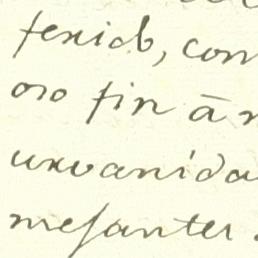 ferido, con
oso fin ā n
urvanida
mesantes